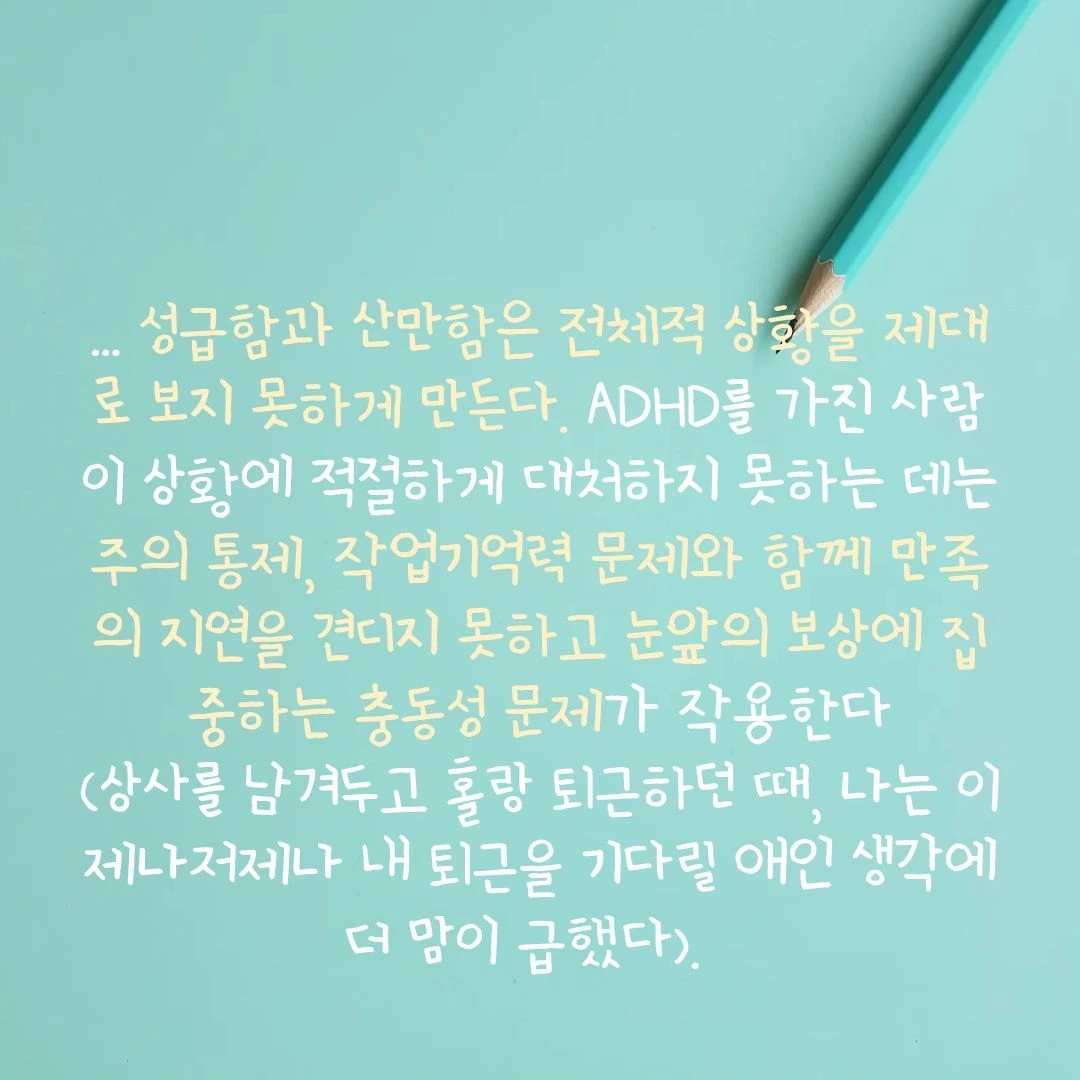 ... 성급함과 산만함은 전체적 상황을 제대
로 보지 못하게 만든다. ADHD를 가진 사람
이 상황에 적절하게 대처하지 못하는 데는
주의 통제, 작업기억력 문제와 함께 만족
의 지연을 견디지 못하고 눈앞의 보상에 집
중하는 충동성 문제가 작용한다
(상사를 남겨두고 홀랑 퇴근하던 때, 나는 이
제나저제나 내 퇴근을 기다릴 애인 생각에
더 맘이 급했다).